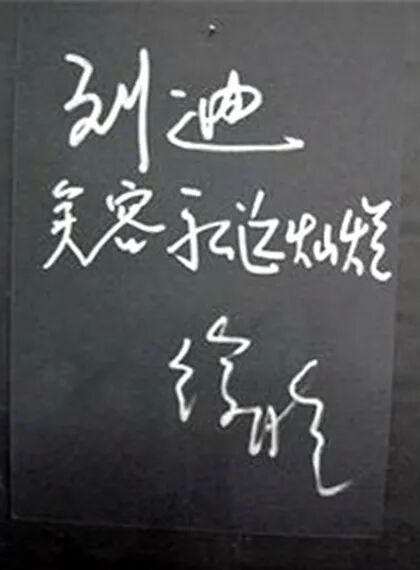 刘迪
笑容永远灿烂
徐